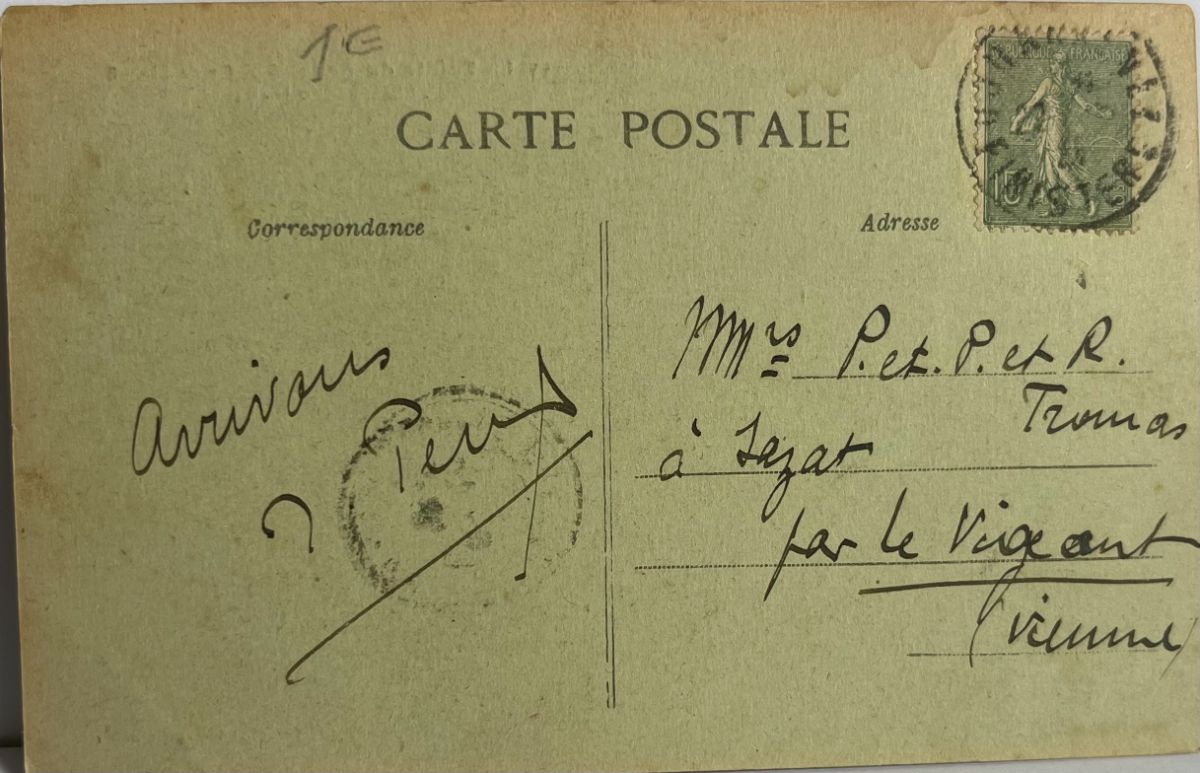 1€
CARTE POSTALE
RÉPUBLIQUE FRANÇAISE
15
FINISTERE
Correspondance
Adresse
Arrivons
MMrs P. et. P. et R.
Tromas
à Jazat
par le Vigeant
(Vienne)